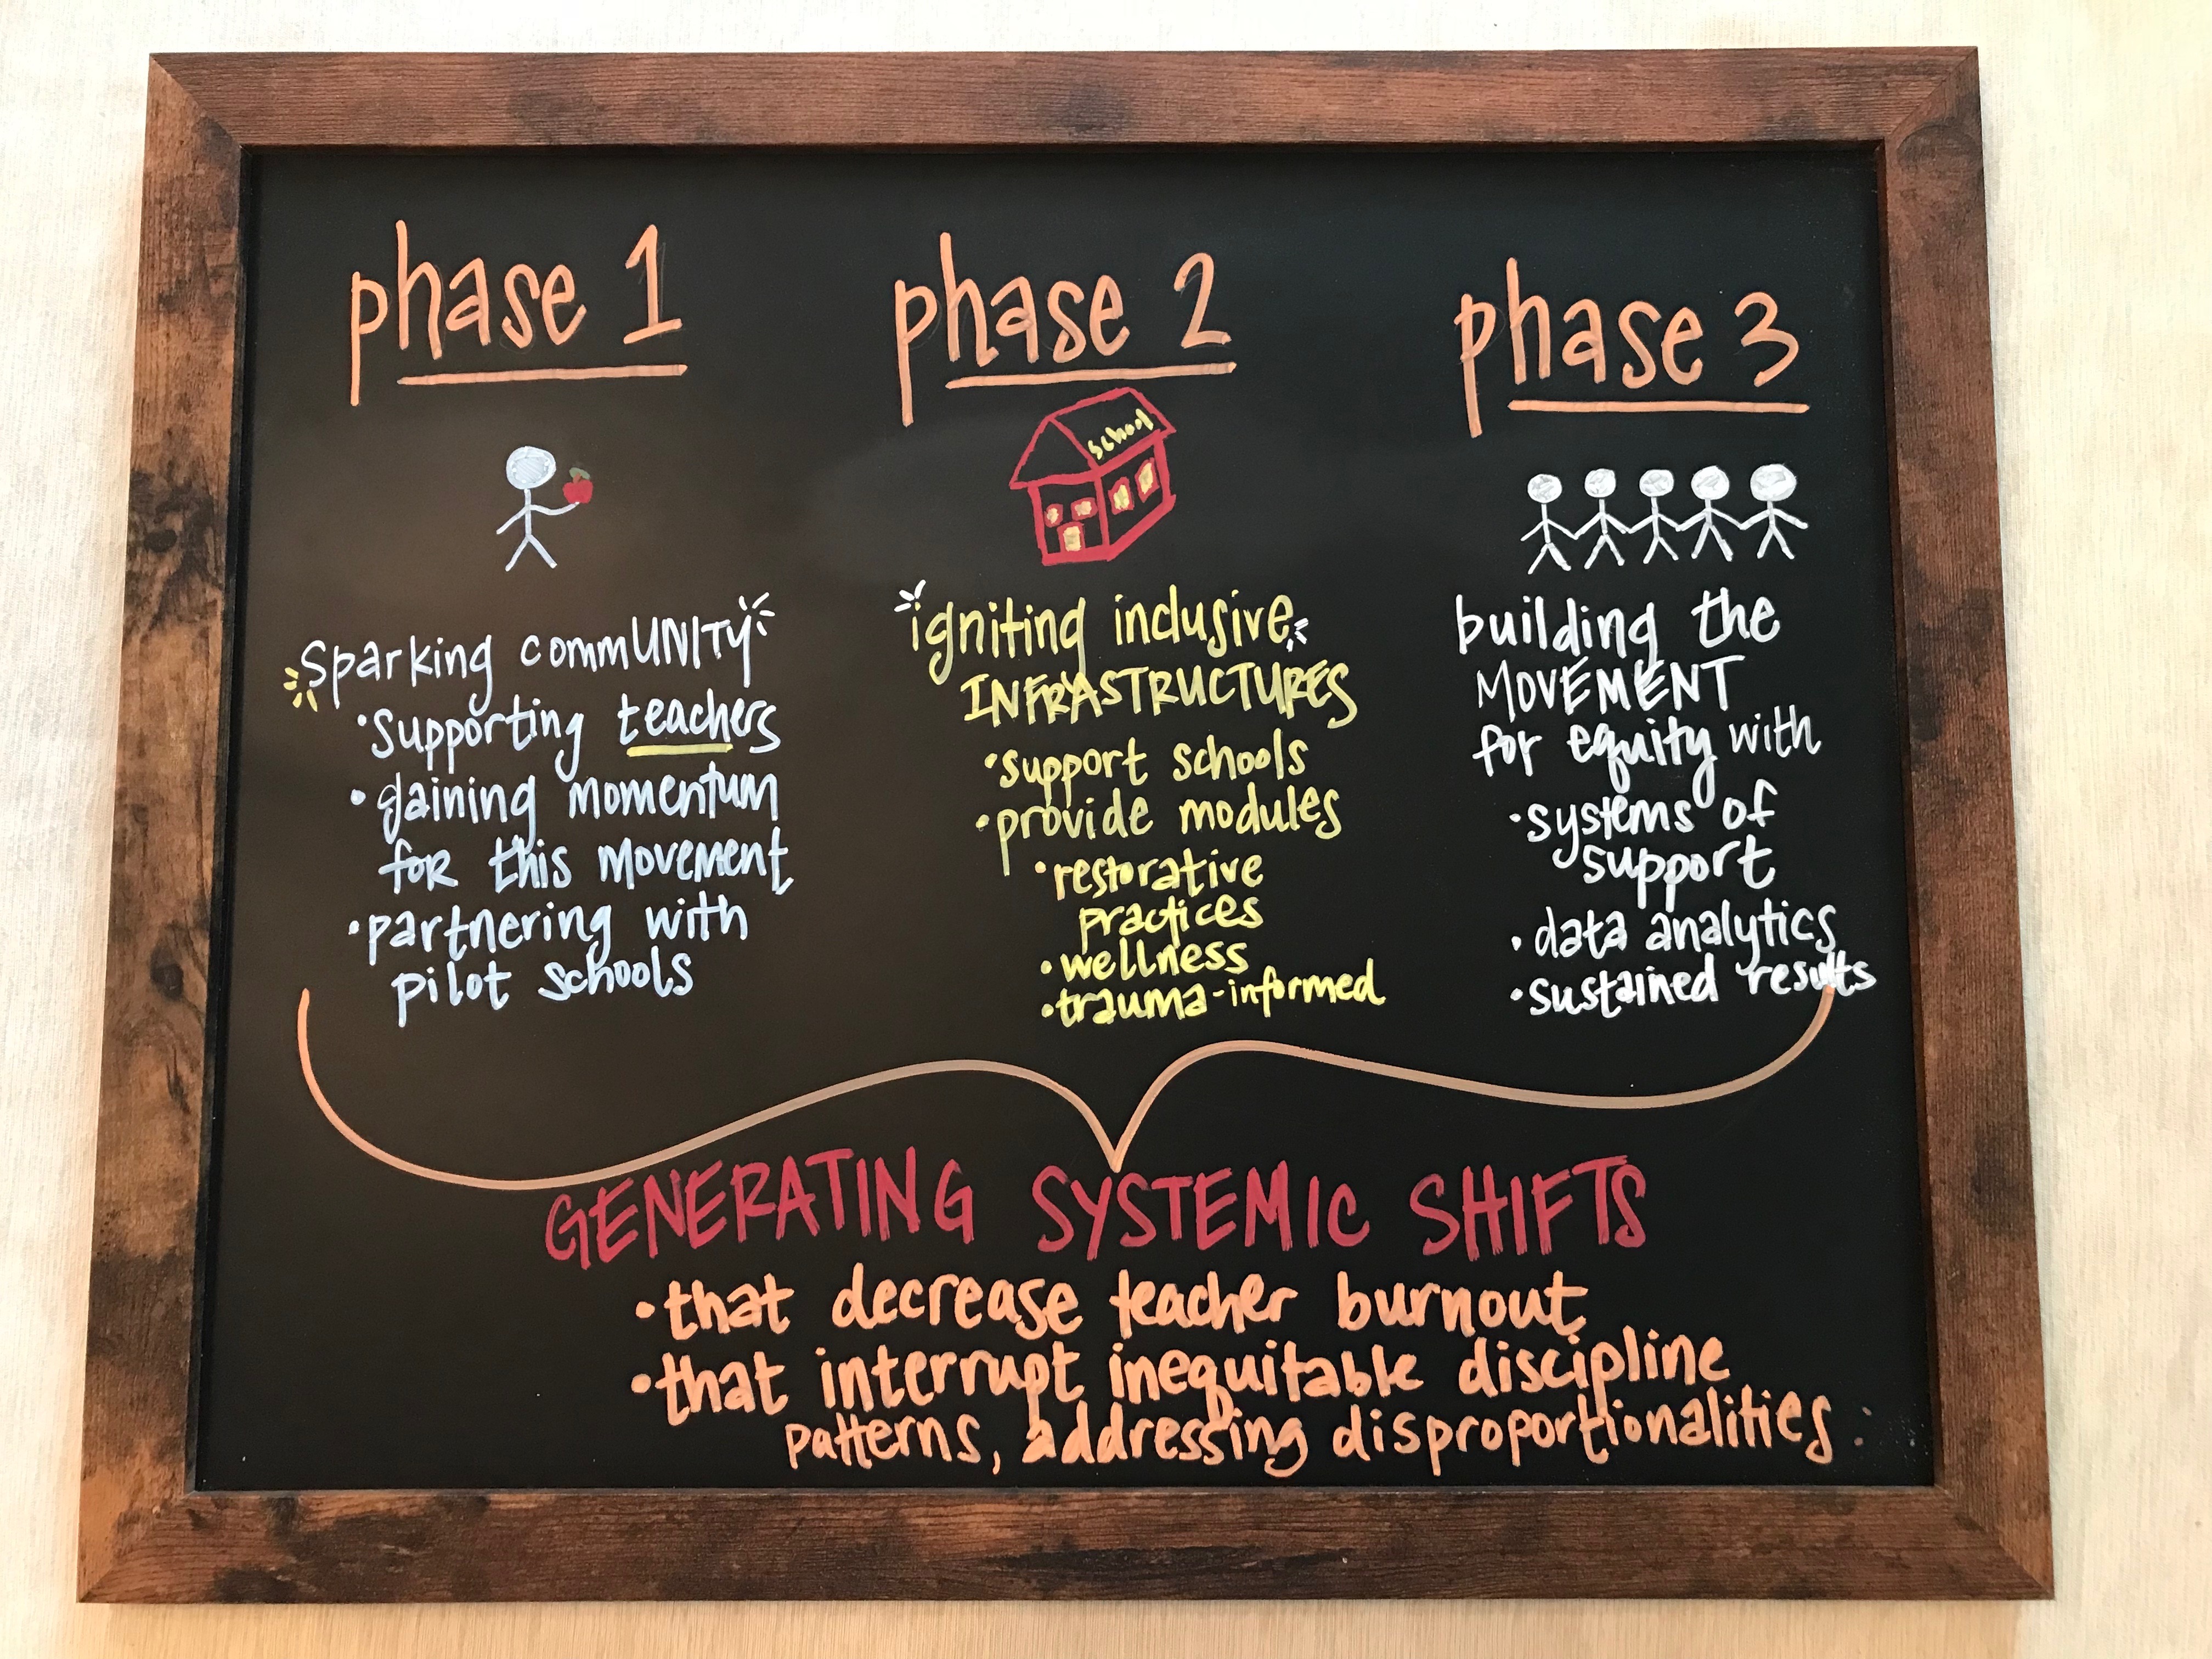 phase 1
sparking commUNITY
•supporting teachers
•gaining momentum
for this movement
•partnering with
pilot schools
phase 2
School
igniting inclusive
INFRASTRUCTURES
•support schools
•provide modules
•restorative
practices
•wellness
•trauma-informed
phase 3
building the
MOVEMENT
for equity with
•systems of
support
•data analytics
•sustained results
GENERATING SYSTEMIC SHIFTS
•that decrease teacher burnout
•that interrupt inequitable discipline
patterns, addressing disproportionalities